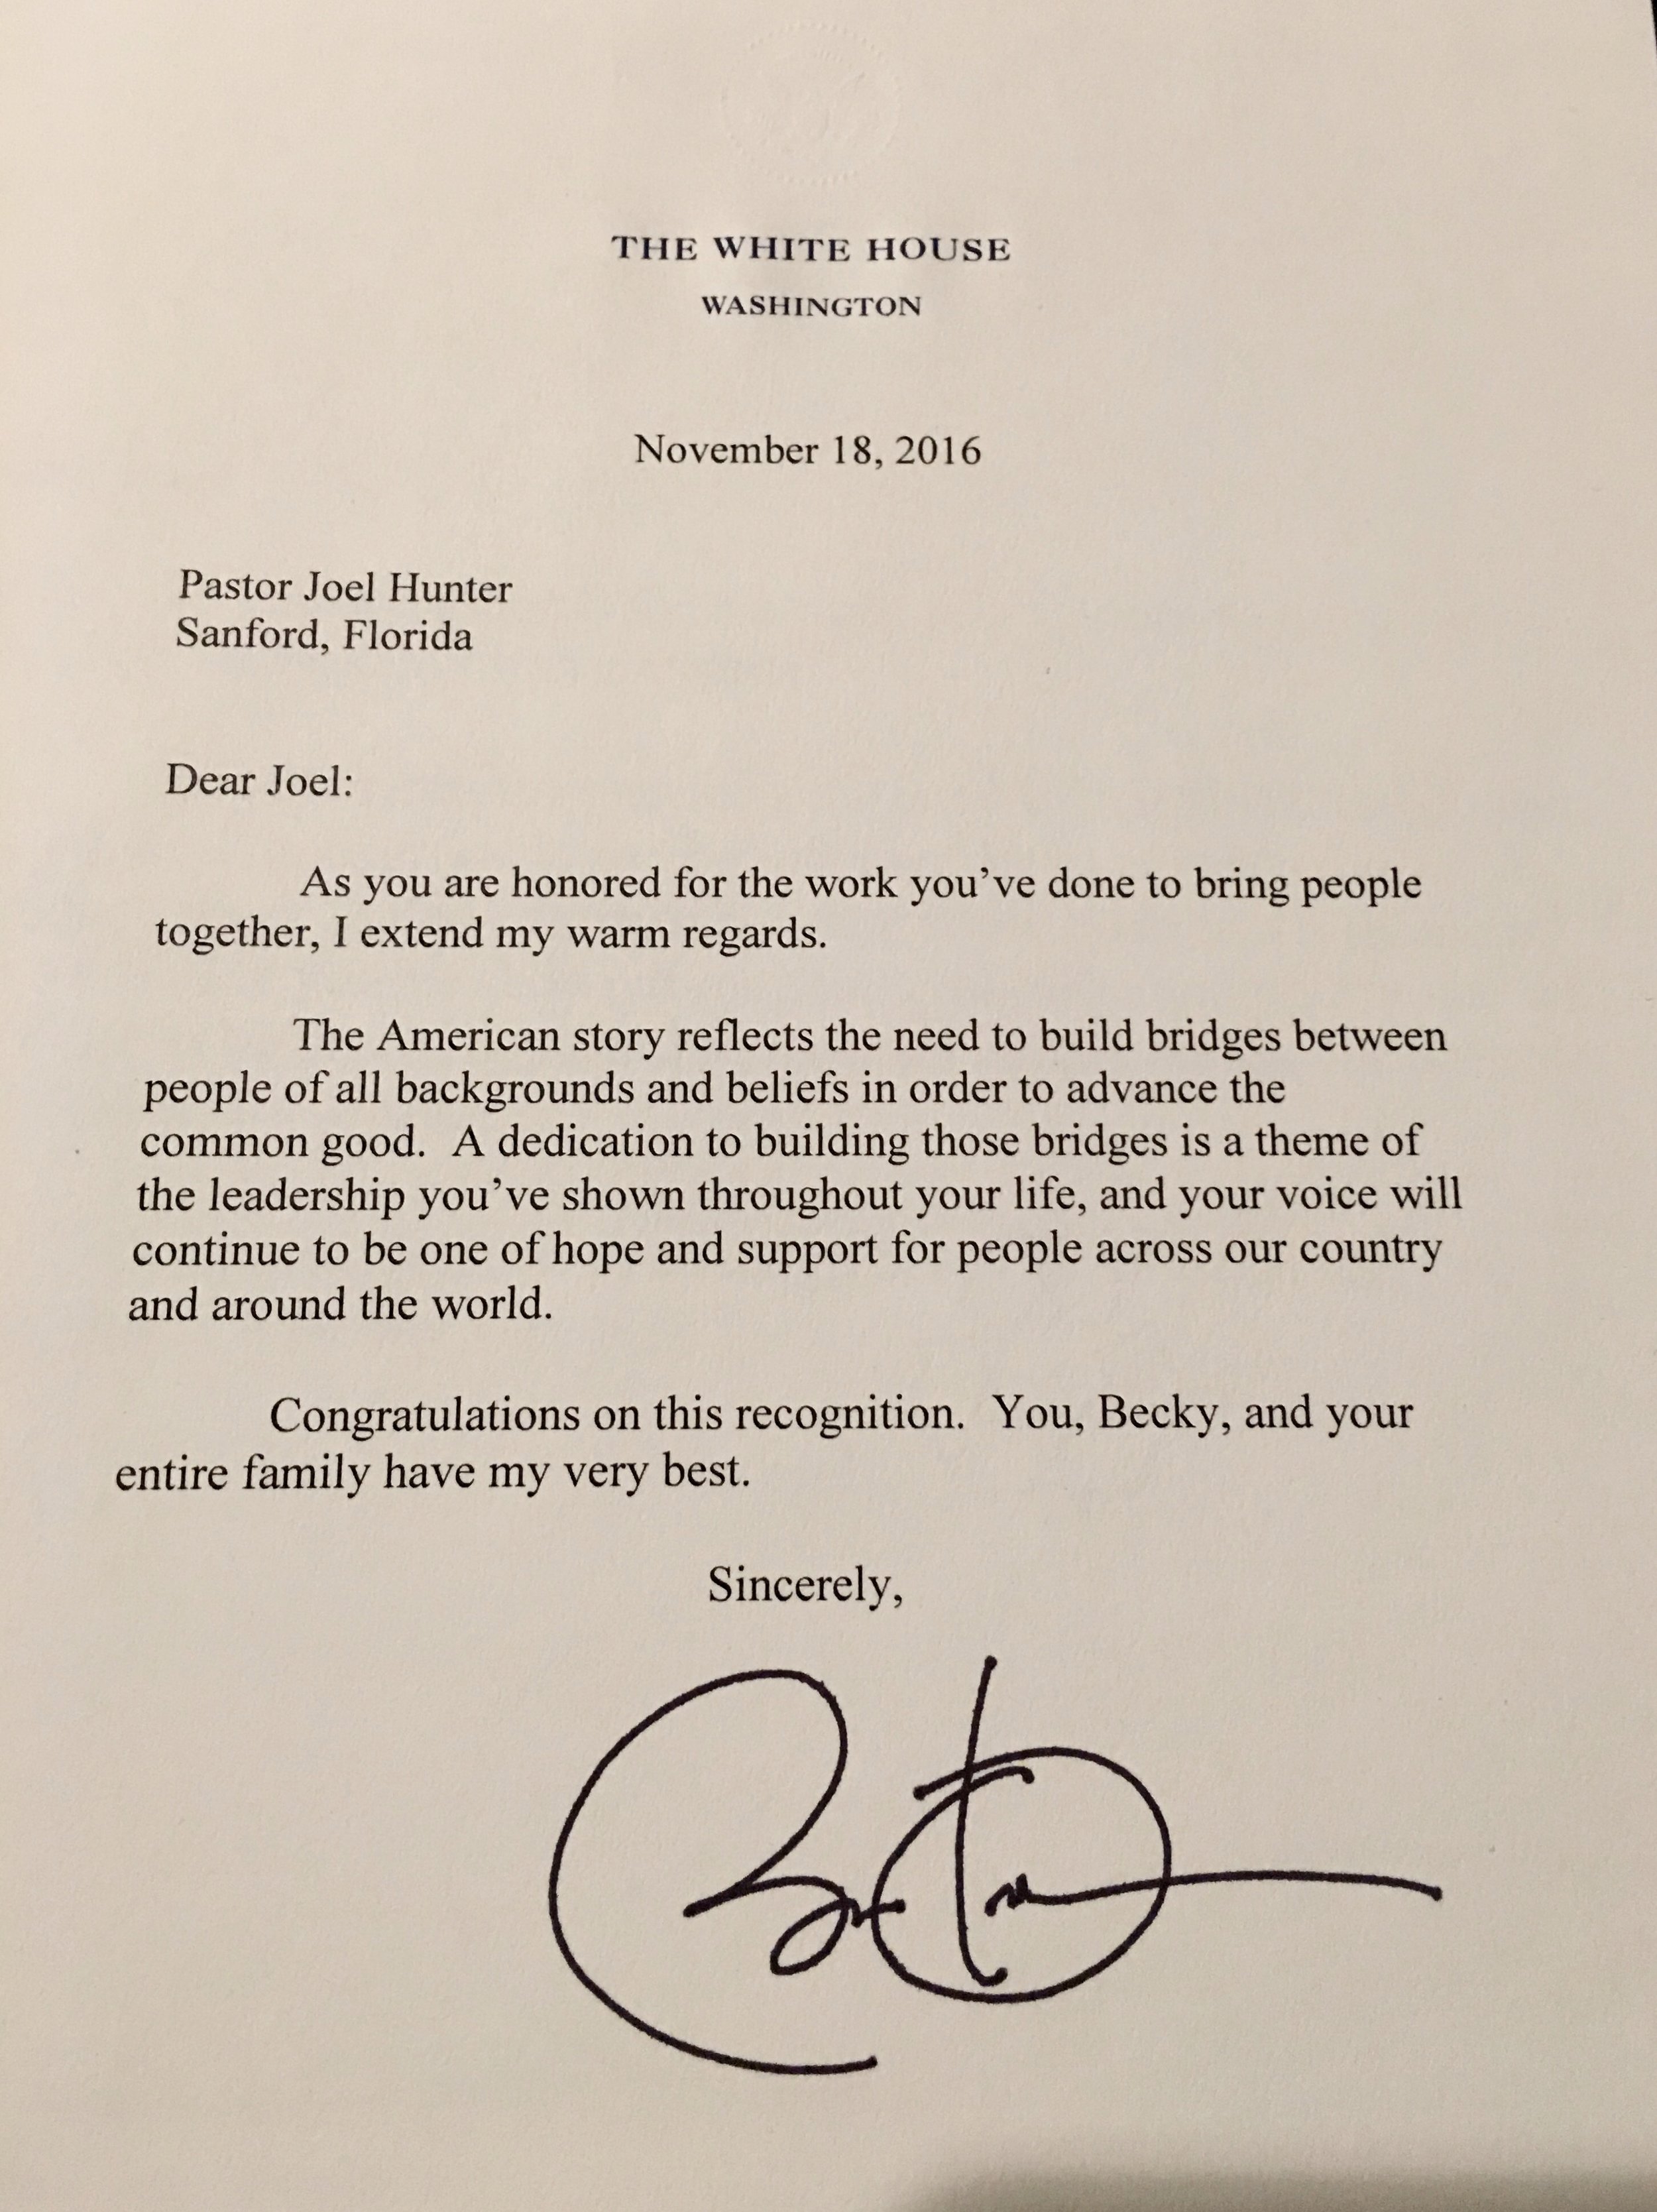 THE WHITE HOUSE
WASHINGTON
November 18, 2016
Pastor Joel Hunter
Sanford, Florida
Dear Joel:
As you are honored for the work you’ve done to bring people
together, I extend my warm regards.
The American story reflects the need to build bridges between
people of all backgrounds and beliefs in order to advance the
common good.  A dedication to building those bridges is a theme of
the leadership you’ve shown throughout your life, and your voice will
continue to be one of hope and support for people across our country
and around the world.
Congratulations on this recognition.  You, Becky, and your
entire family have my very best.
Sincerely,